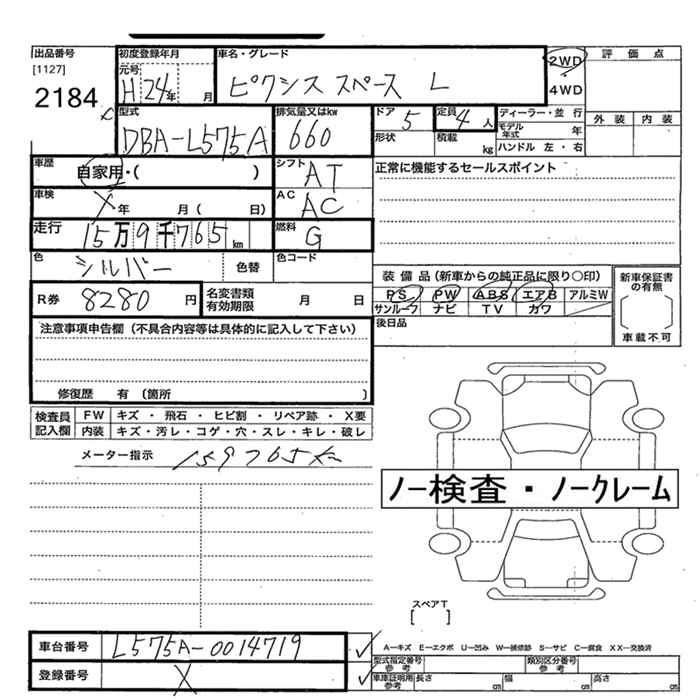 出品番号
[1127]
2184
初度登録年月
元号
H 24年 月
車名・グレード
ピクシス スペース L
2WD
4WD
評価点
外装 内装
型式
DBA-L575A
排気量又はkw
660
ドア
5
定員
4人
形状
積載
kg
ディーラー・並行
モデル年式 年
ハンドル 左・右
車歴
自家用・( )
シフト
AT
正常に機能するセールスポイント
車検
X年 月( 日)
AC
AC
走行
15万9千765km
燃料
G
色
シルバー
色替
色コード
装備品(新車からの純正品に限り○印)
PS PW ABS エアB アルミW
サンルーフ ナビ TV カワ
後日品
新車保証書の有無
[ ]
車載不可
R券
8280円
名変書類有効期限
月 日
注意事項申告欄(不具合内容等は具体的に記入して下さい)
修復歴 有 [箇所 ]
検査員記入欄
FW キズ・飛石・ヒビ割・リペア跡・X要
内装 キズ・汚レ・コゲ・穴・スレ・キレ・破レ
メーター指示
159765K
ノー検査・ノークレーム
スペアT
[ ]
車台番号
L575A-0014719
登録番号
X
A―キズ E―エクボ U―凹み W―補修跡 S―サビ C―腐食 XX―交換済
型式指定番号参考
類別区分番号参考
車庫証明用参考
長さ cm 幅 cm 高さ cm